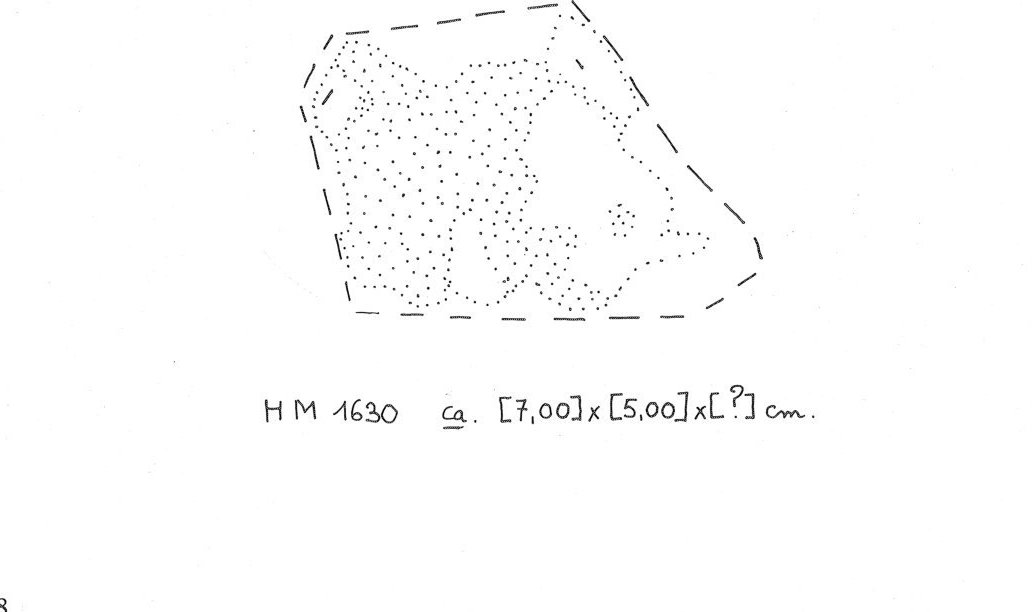 HM 1630 ca. [7,00]x[5,00]x[?] cm.
8